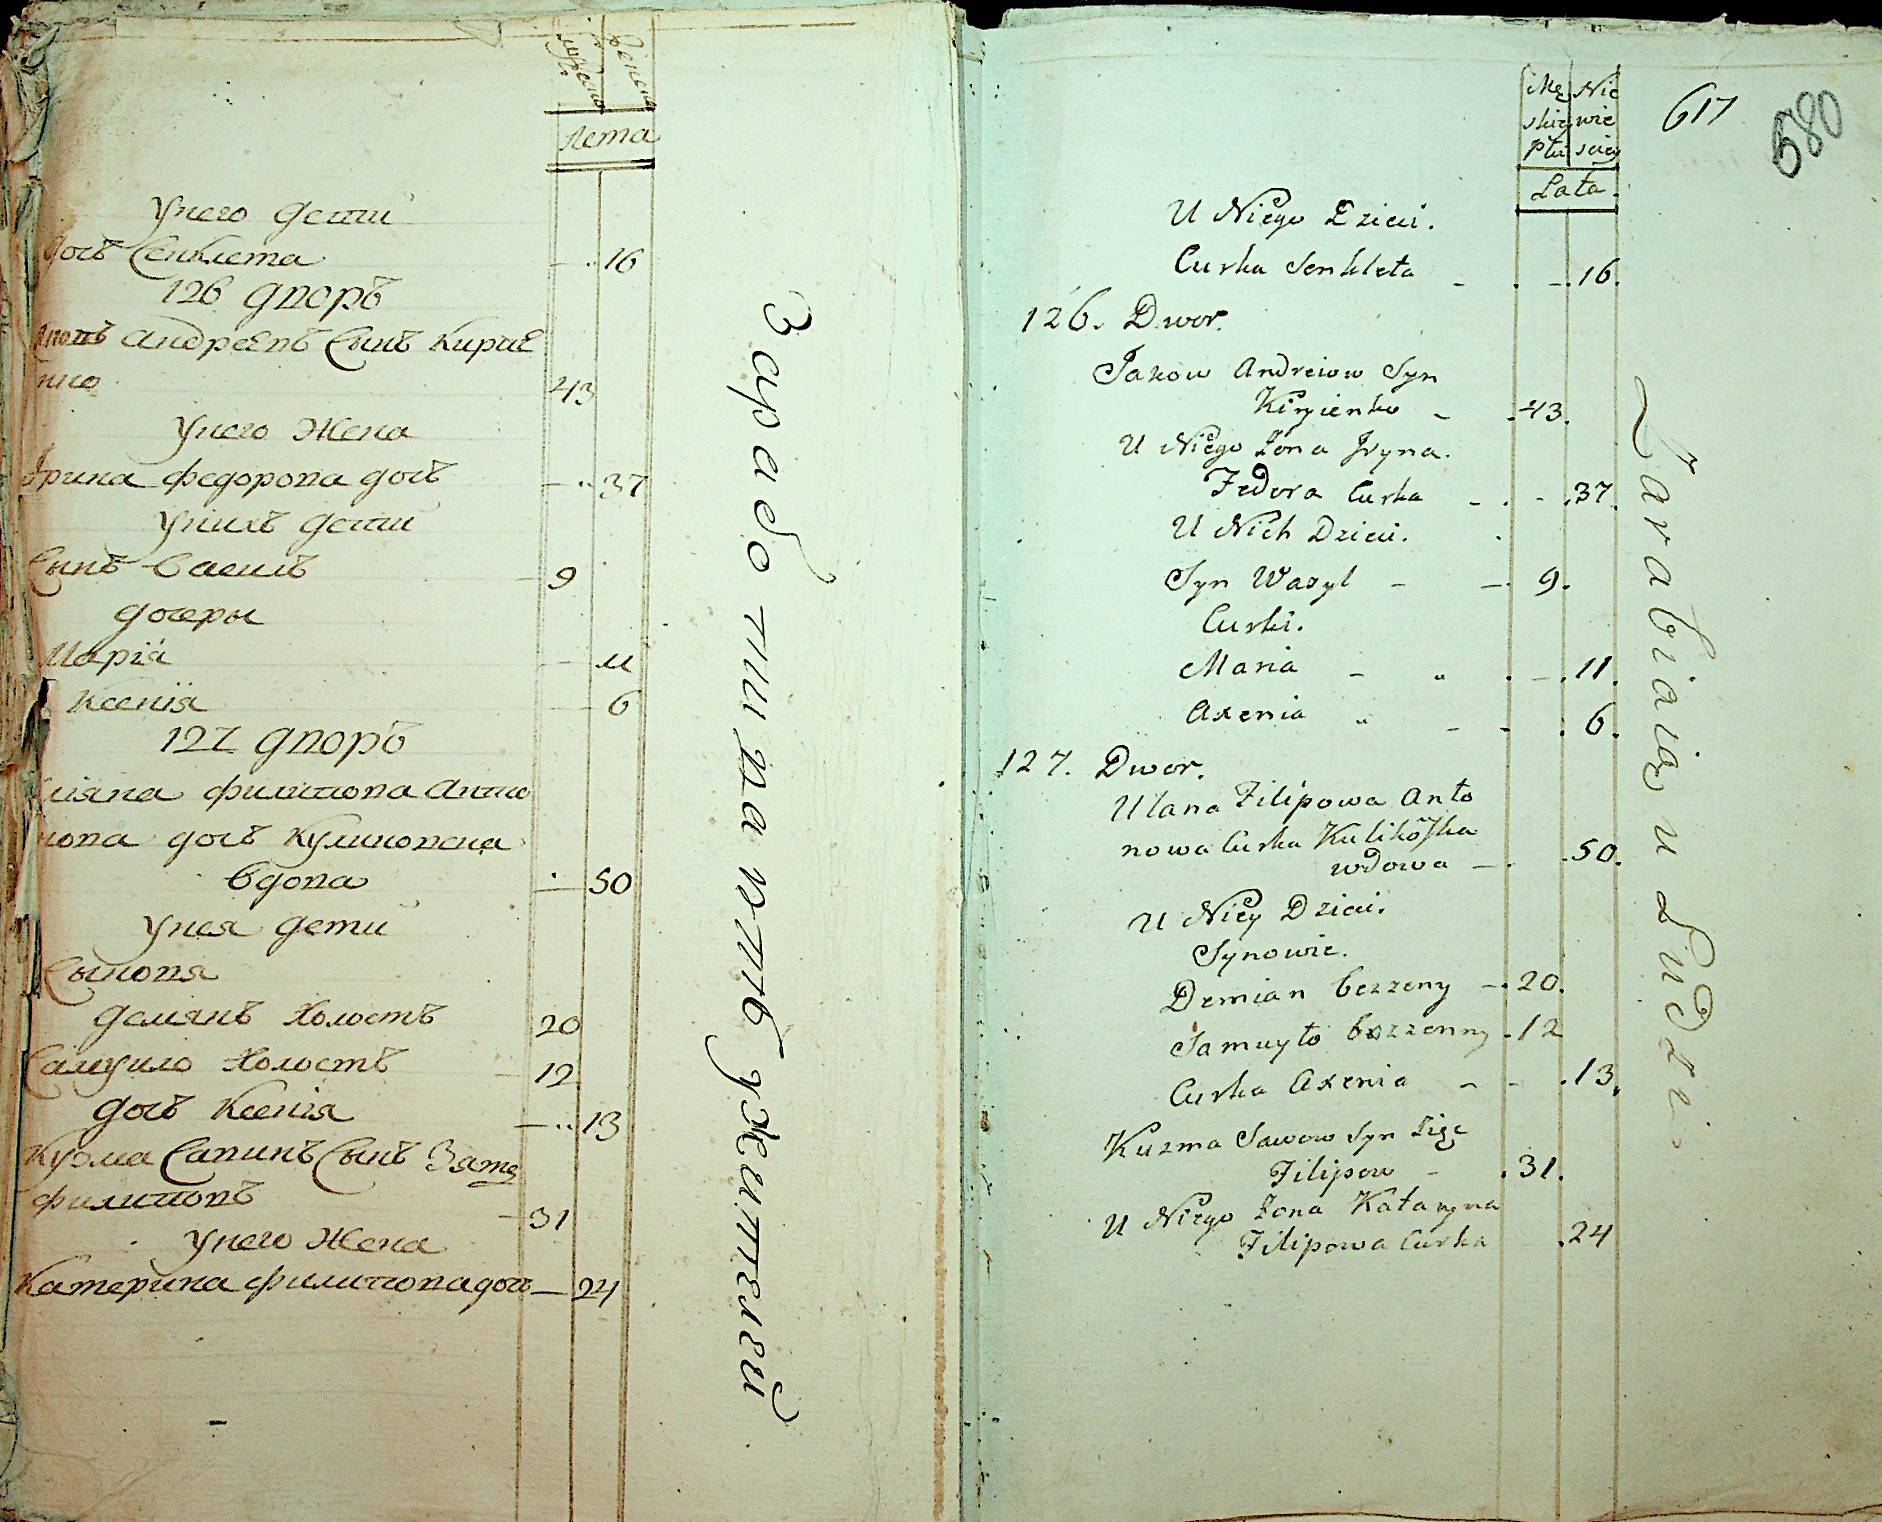 Лета
У него дети
дочь Сенклета 16
126 дворъ
Андреевъ Сынъ Кирие
нко 43
У него Жена
Ирина Федорова дочь 37
У нихъ дети
Сынъ Василь 9
дочеры
Марія 11
Ксенія 6
127 дворъ
Филипова Анто
нова дочь Куликовска
вдова 50
У нея дети
Сыновя
Демянъ Холостъ 20
Самуило Холостъ 12
дочь Ксенія 13
Кузма Савинъ Сынъ Зять
Филиповъ 31
У него Жена
Катерина Филипова дочь 24
Заработивать у жителей
Mę Nie
skiey wie
Płci sciey
Lata.
617
680
U Niego Dzieci.
Curka Senkleta 16.
126. Dwor.
Jakow Andreiow Syn
Kiryienko 43.
U Niego Zona Jryna.
Fedora Curka 37.
U Nich Dzieci.
Syn Wasyl 9.
Curki.
Maria 11.
Axenia 6.
127. Dwor.
Ulana Filipowa Anto
nowa Curka Kulikowska
wdowa 50.
U Niey Dzieci.
Synowie.
Demian bezzeny 20.
Samuyło bezzenny 12
Curka Axenia 13.
Kuzma Sawow Syn Zięc
Filipow 31.
U Niego Zona Kataryna
Filipowa Curka 24
Zarabiaią u Ludzi.